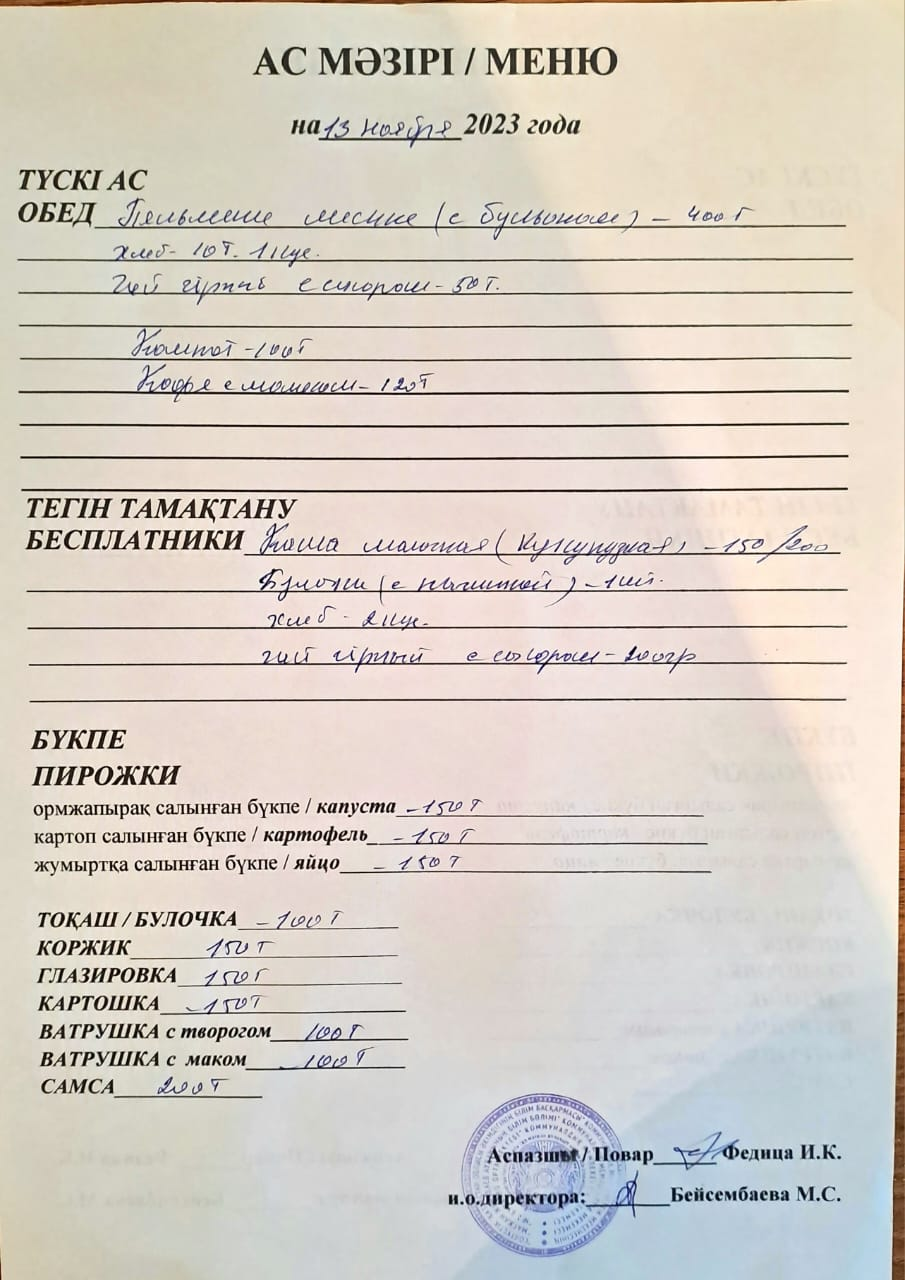 АС МӘЗІРІ / МЕНЮ
на 13 ноября 2023 года
ТҮСКІ АС
ОБЕД Пельмени мясные (с бульоном) – 400т
хлеб - 10т. 1шус.
Чай чёрный с сахаром - 50т.
Компот - 100т
Кофе с молоком - 120т
ТЕГІН ТАМАҚТАНУ
БЕСПЛАТНИКИ Каша молочная (кукурузная) – 150/200
Булочки (с начинкой) – 1шт.
хлеб - 2шус.
чай чёрный с сахаром - 200гр
БҮКПЕ
ПИРОЖКИ
ормжапырақ салынған бүкпе / капуста – 150т
картоп салынған бүкпе / картофель – 150т
жумыртқа салынған бүкпе / яйцо – 150т
ТОҚАШ / БУЛОЧКА – 100т
КОРЖИК 150т
ГЛАЗИРОВКА 150т
КАРТОШКА – 150т
ВАТРУШКА с творогом 100т
ВАТРУШКА с маком 100т
САМСА 200т
Аспазшы / Повар Федица И.К.
и.о.директора: Бейсембаева М.С.